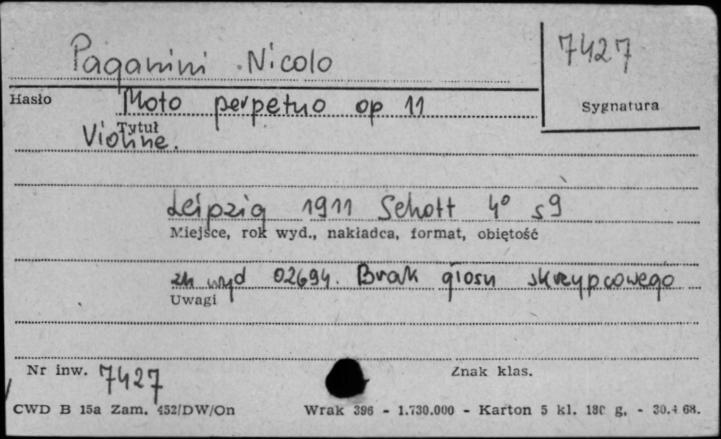 Paganini Nicolo
7427
Hasło
Moto perpetuo op 11
Sygnatura
Tytuł
Violine.
Leipzig 1911 Schott 4° s 9
Miejsce, rok wyd., nakładca, format, objętość
zn wyd 02694. Brak głosu skrzypcowego
Uwagi
Nr inw. 7427
Znak klas.
CWD B 15a Zam. 452/DW/On
Wrak 396 - 1.730.000 - Karton 5 kl. 180 g. - 30.4 68.